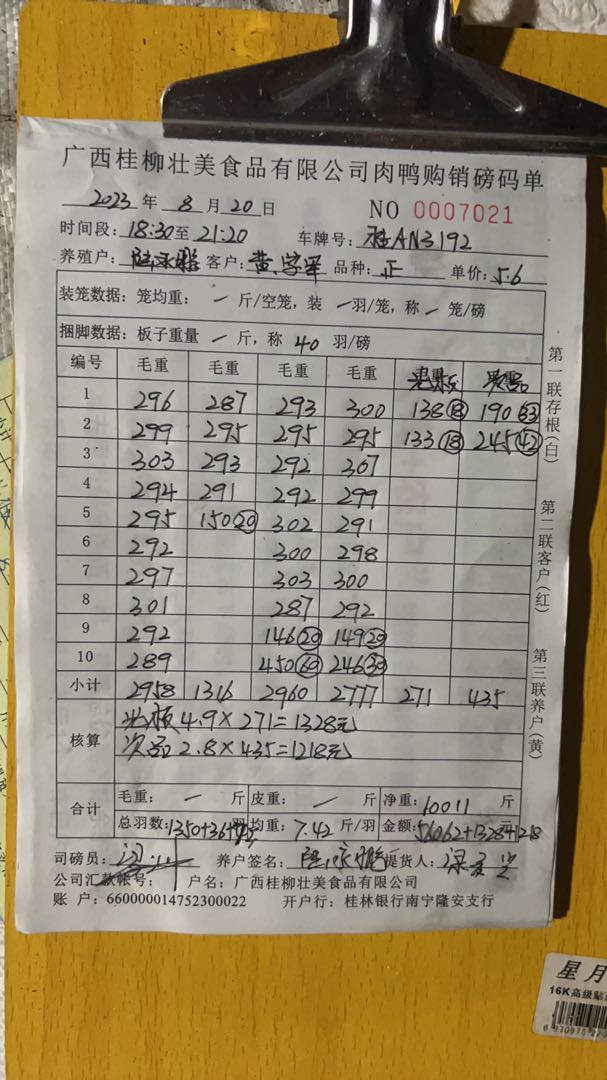 广西桂柳壮美食品有限公司肉鸭购销磅码单
2023 年 8 月 20 日 NO 0007021
时间段: 18:30至 21:20 车牌号: 桂AN3192
养殖户: 客户: 黄 品种: 正 单价: 5.6
装笼数据: 笼均重: — 斤/空笼, 装 — 羽/笼, 称 — 笼/磅
捆脚数据: 板子重量 — 斤, 称 40 羽/磅
编号 毛重 毛重 毛重 毛重
1 296 287 293 300 138⑱ 190㉝
2 299 295 295 295 133⑱ 245㊷
3 303 293 292 307
4 294 291 292 299
5 295 150⑳ 302 291
6 292 300 298
7 297 303 300
8 301 287 292
9 292 146⑳ 149⑳
10 289 450(60) 246
小计 2958 1316 2960 2777 271 435
核算
4.9×271=1328元
次品 2.8×435=1218元
合计
毛重: — 斤 皮重: — 斤 净重: 10011 斤
总羽数: 1350+36+ 羽 均重: 7.42 斤/羽 金额: 56062+1328+1218 元
司磅员: 养户签名: 提货人:
公司汇款帐号: 户名: 广西桂柳壮美食品有限公司
账 户: 660000014752300022 开户行: 桂林银行南宁隆安支行
第一联存根(白)
第二联客户(红)
第三联养户(黄)
星月
16K高级贴